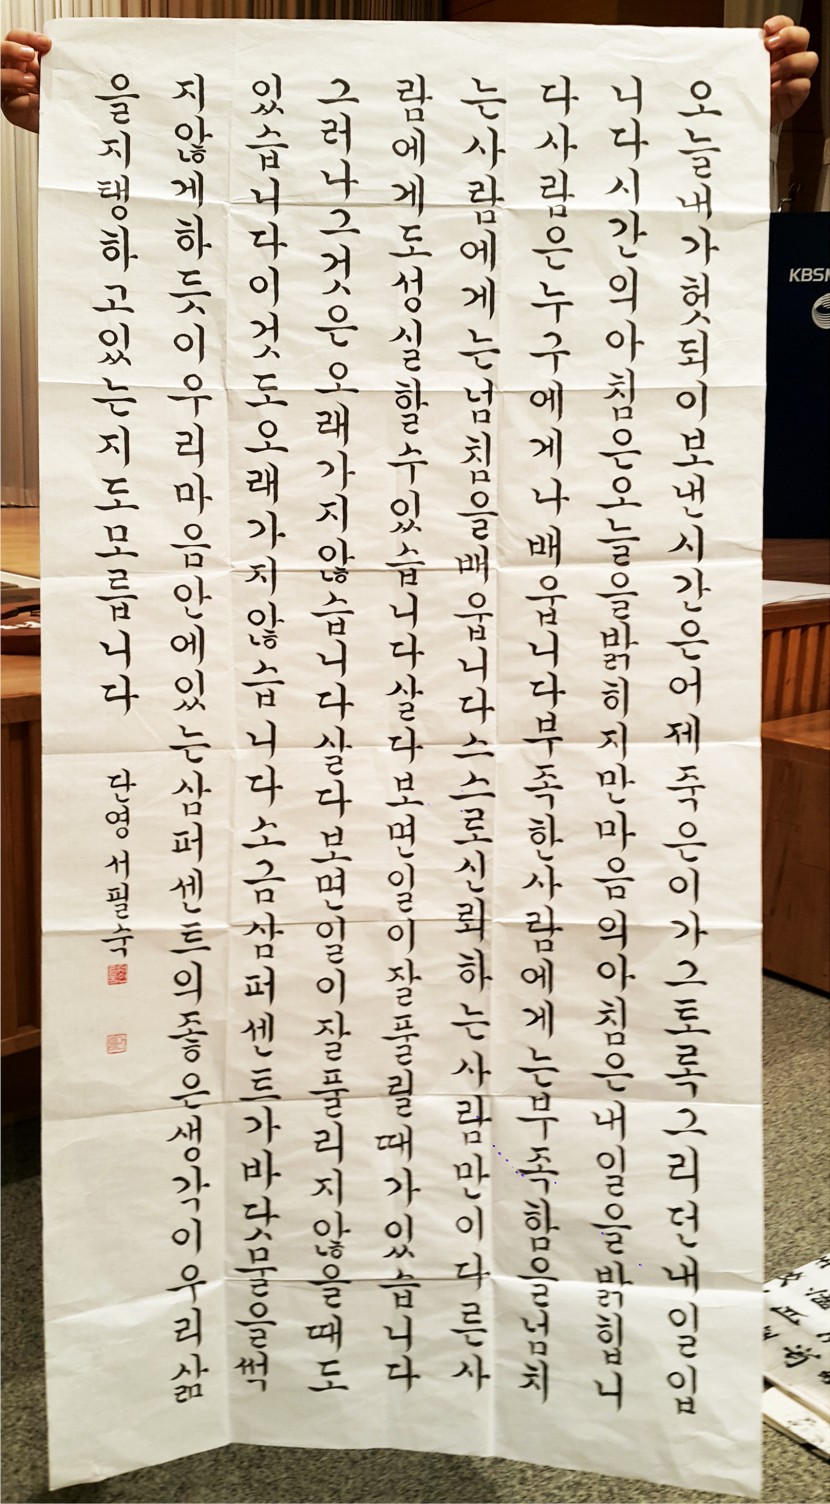 오늘내가헛되이보낸시간은어제죽은이가그토록그리던내일입
니다시간의아침은오늘을밝히지만마음의아침은내일을밝힙니
다사람은누구에게나배웁니다부족한사람에게는부족함을넘치
는사람에게는넘침을배웁니다스스로신뢰하는사람만이다른사
람에게도성실할수있습니다살다보면일이잘풀릴때가있습니다
그러나그것은오래가지않습니다살다보면일이잘풀리지않을때도
있습니다이것도오래가지않습니다소금삼퍼센트가바닷물을썩
지않게하듯이우리마음안에있는삼퍼센트의좋은생각이우리삶
을지탱하고있는지도모릅니다
단영서필숙
KBSM